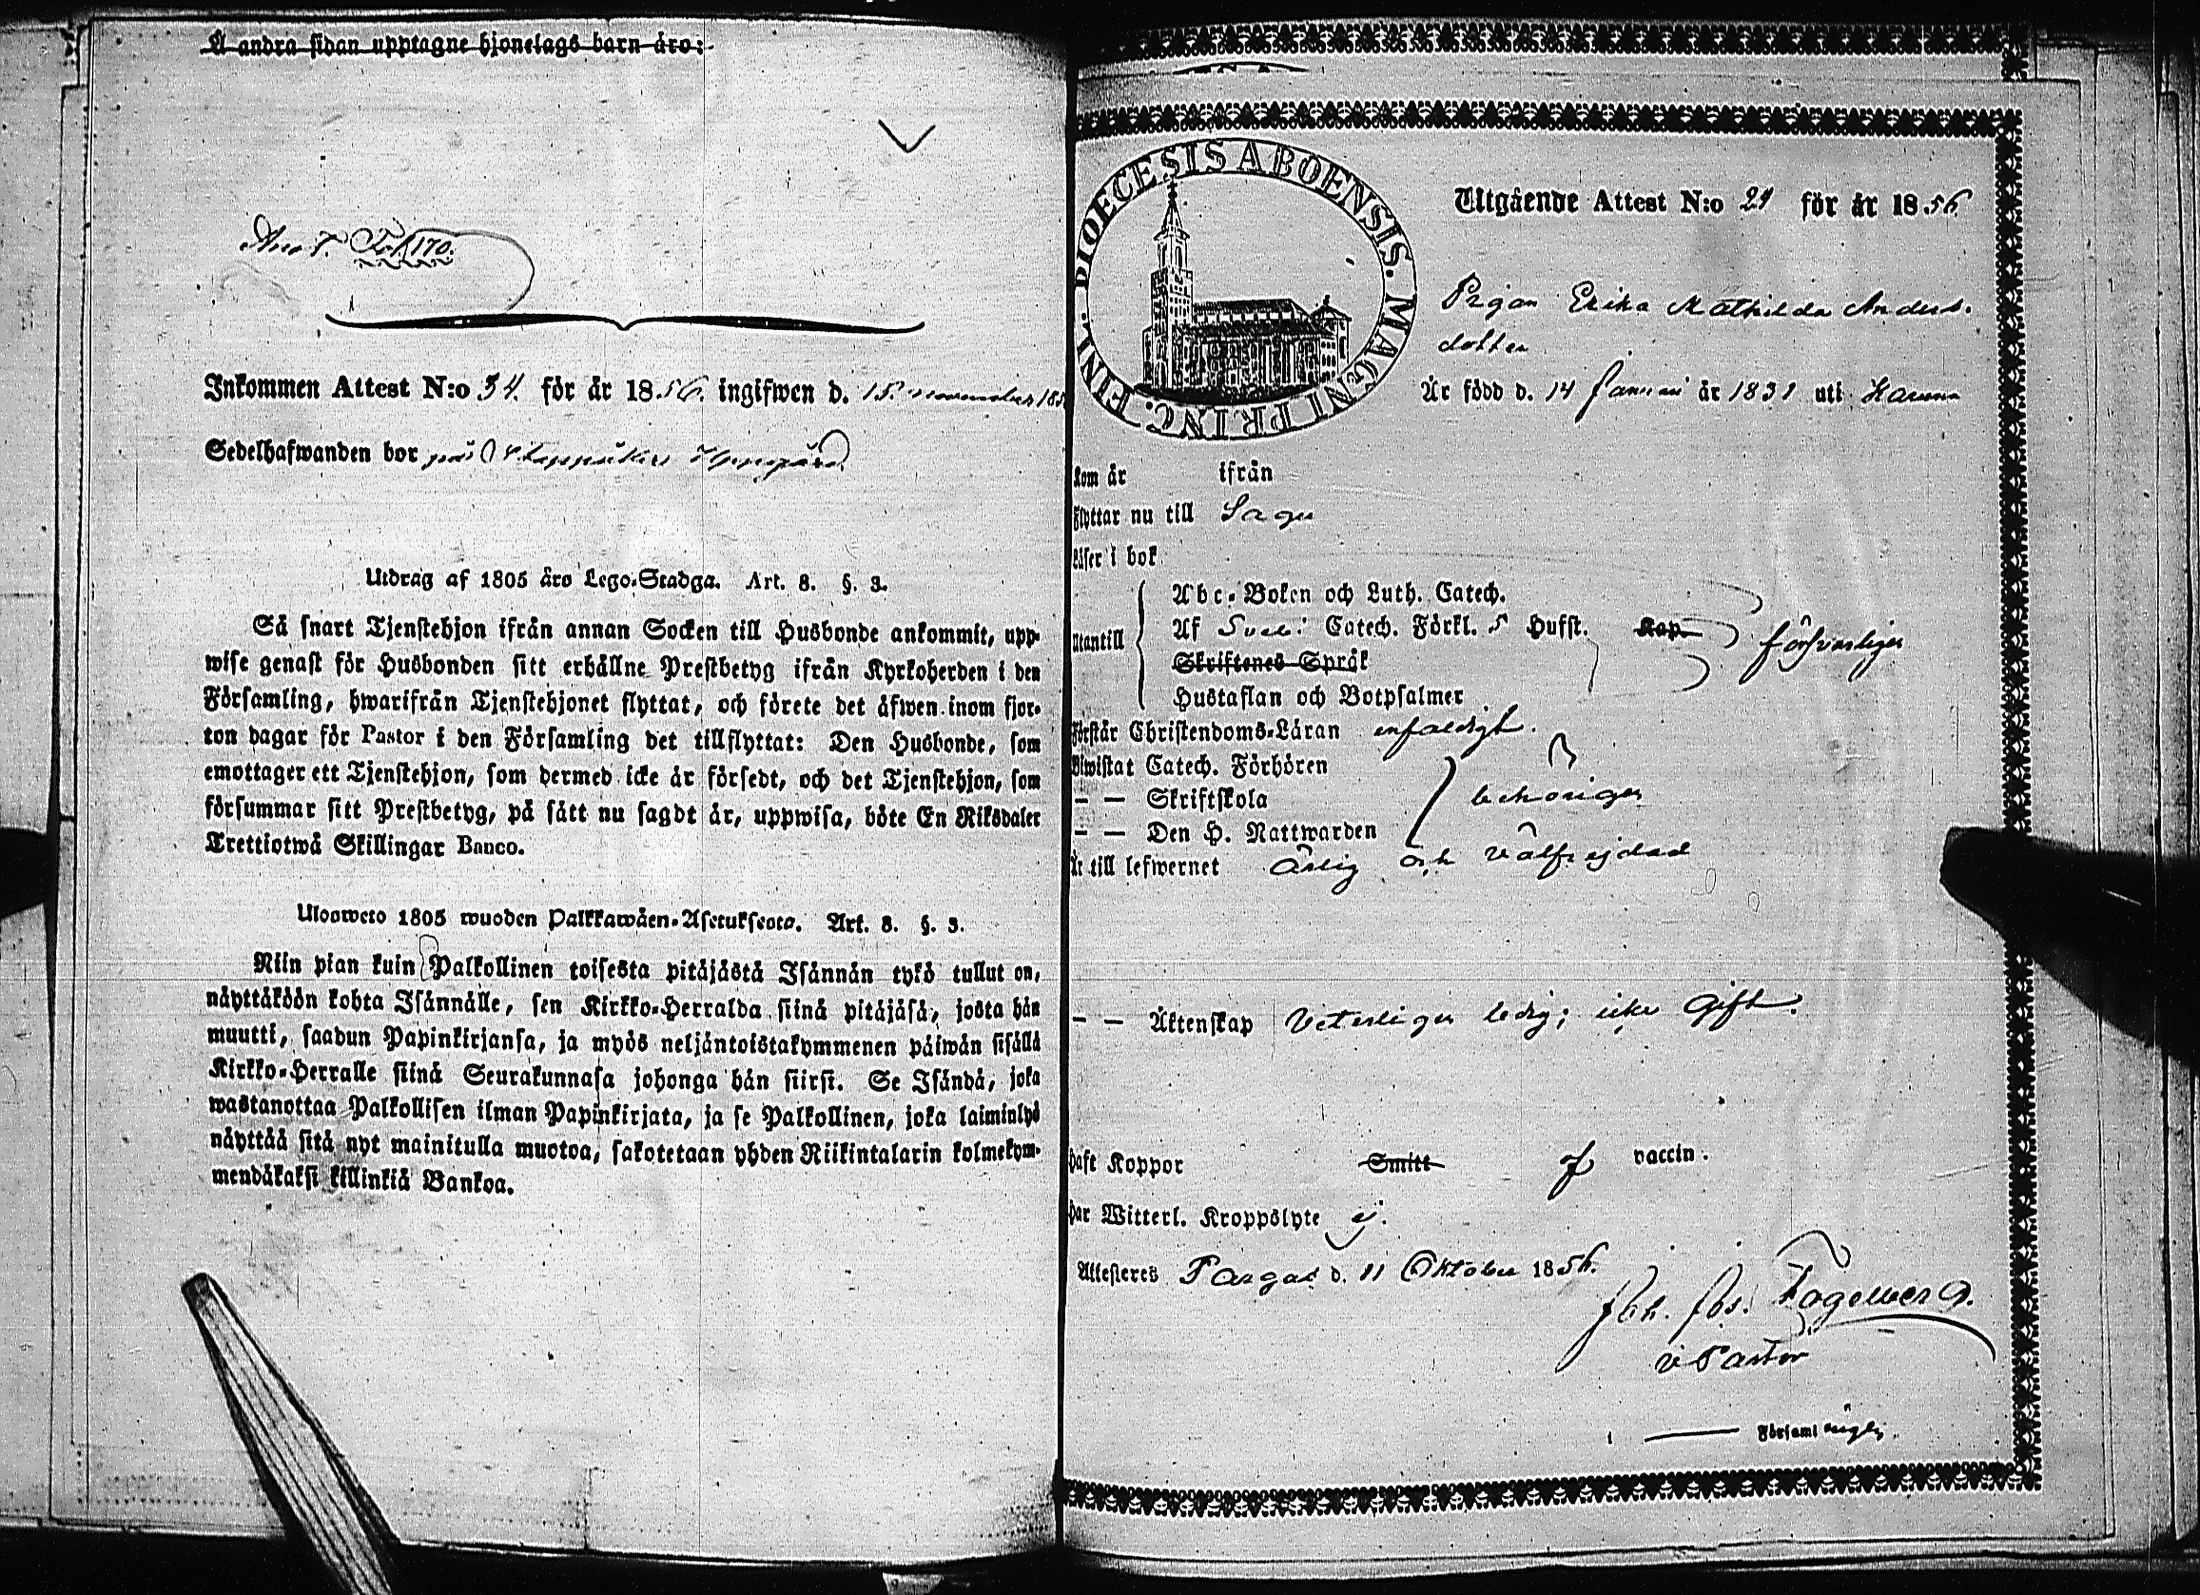 Å andra sidan upptagne hjonelags barn äro:
Fol 170.
Inkommen Attest N:o 34 för år 1856. ingifwen d. 15 november 185
Sedelhafwanden bor på
Utdrag af 1805 års Lego-Stadga. Art. 8. §. 3.
Så snart Tjenstehjon ifrån annan Socken till Husbonde ankommit, upp-
wise genast för Husbonden sitt erhållne Prestbetyg ifrån Kyrkoherden i den
Församling, hwarifrån Tjenstehjonet flyttat, och förete det äfwen inom fjor-
ton dagar för Pastor i den Församling det tillflyttat: Den Husbonde, som
emottager ett Tjenstehjon, som dermed icke är försedt, och det Tjenstehjon, som
försummar sitt Prestbetyg, på sätt nu sagdt är, uppwisa, böte En Riksdaler
Trettiotwå Skillingar Banco.
Ulosweto 1805 wuoden Palkkawäen-Asetuksesta. Art. 8. §. 3.
Niin pian kuin Palkollinen toisesta pitäjästä Isännän tykö tullut on,
näyttäköön kohta Isännälle, sen Kirkko-Herralda siinä pitäjäsä, josta hän
muutti, saadun Papinkirjansa, ja myös neljäntoistakymmenen päiwän sisällä
Kirkko-Herralle siinä Seurakunnasa johonga hän siirsi. Se Isändä, joka
wastanottaa Palkollisen ilman Papinkirjata, ja se Palkollinen, joka laiminlyö
näyttää sitä nyt mainitulla muotoa, sakotetaan yhden Riikintalarin kolmekym-
mendäkaksi killinkiä Bankoa.
DIOECESIS ABOENSIS. MAGNI PRINC. FINL.
Utgående Attest N:o 29 för år 1856.
Pigan Erika Mathilda Anders-
dotter
Är född d. 14 Januari år 1831 uti Karuna
kom år ifrån
Flyttar nu till Sagu
Läser i bok
Abc-Boken och Luth. Catech.
utantill Af Sveb: Catech. Förkl. 5 Hufst. Kap. försvarliger
Skriftenes Språk
Hustaflan och Botpsalmer
Förstår Christendoms-Läran enfaldigt.
Biwistat Catech. Förhören
— — Skriftskola behöriger
— — Den H. Nattwarden
Är till lefwernet ärlig och välfrejdad
— — Äktenskap Veterliger ledig; icke Gift.
haft Koppor Smitt af vaccin.
har Witterl. Kroppslyte ej.
Attesteres Pargas d. 11 Oktober 1856.
Joh. Jos. Fogelberg.
v Pastor
i — Församlingen.